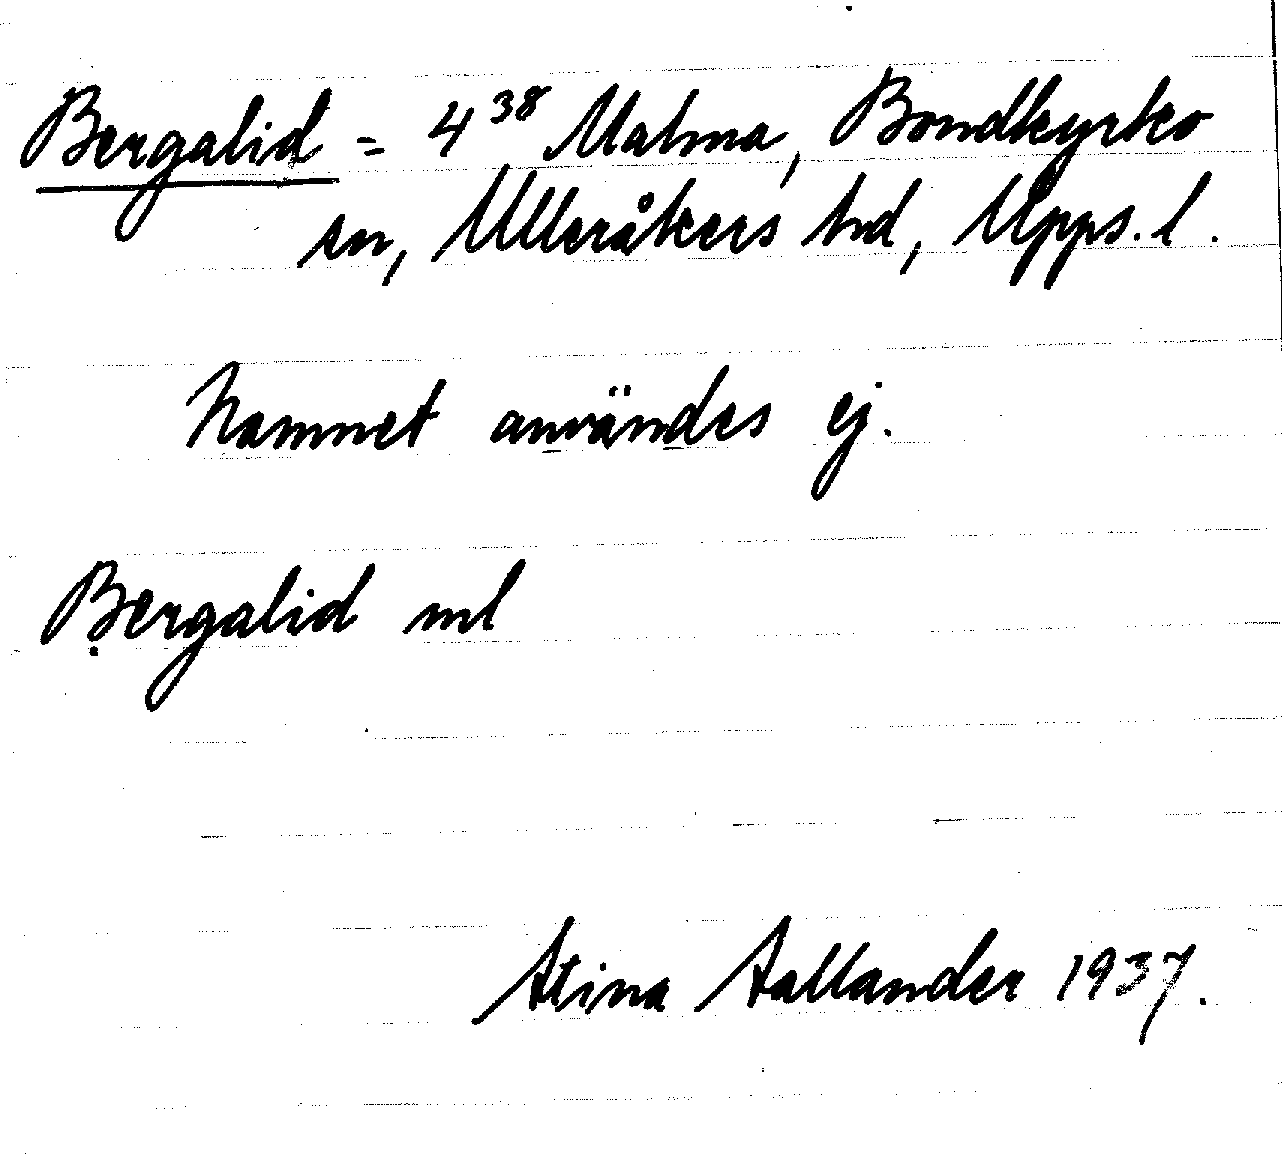 Bergalid = 4³⁸ Malma, Bondkyrko
sn, Ulleråkers hd, Upps. l.
Namnet användes ej.
Bergalid ml
Stina Sallander 1937.